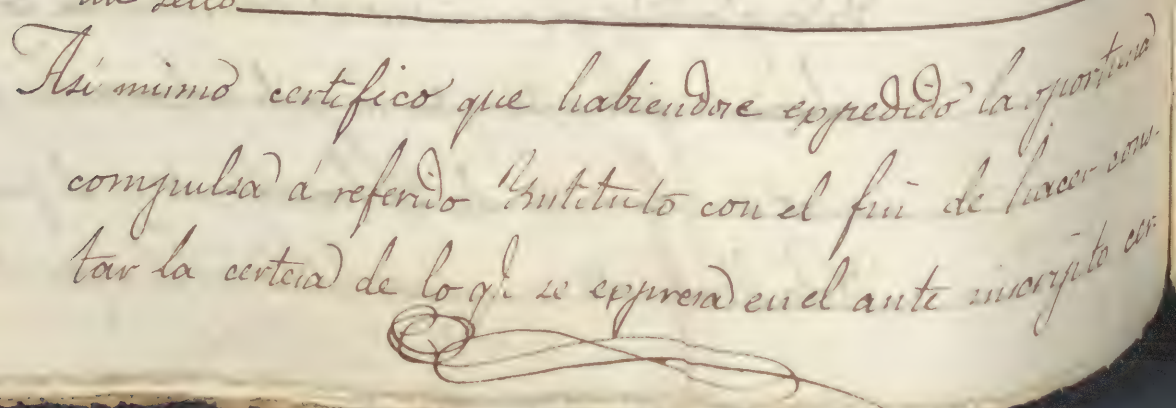 un sello
Asi mismo certifico que habiendose expedido la oportuna
compulsa á referido Instituto con el fin de hacer cons-
tar la certeza de lo qe se expresa en el ante inscripto cer-